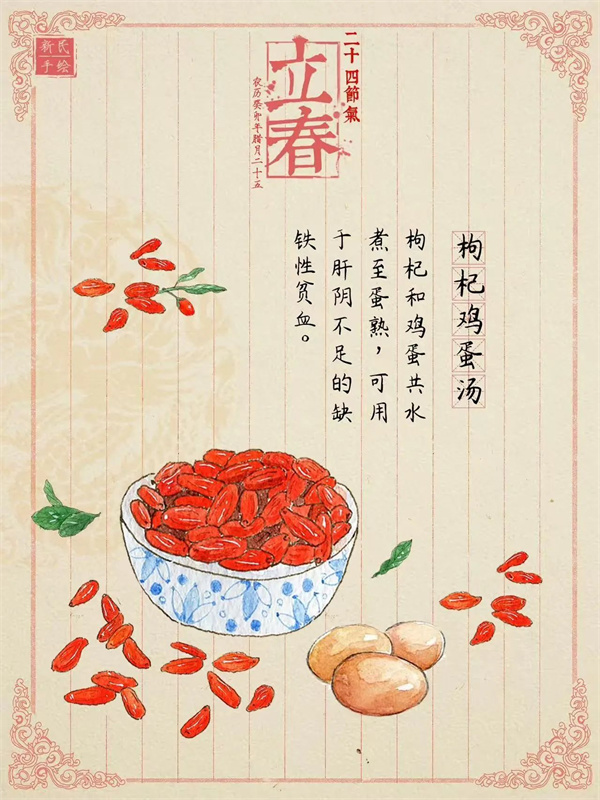 新氏
手绘
二十四節氣
立春
农历癸卯年腊月二十五
枸杞鸡蛋汤
枸杞和鸡蛋共水
煮至蛋熟，可用
于肝阴不足的缺
铁性贫血。